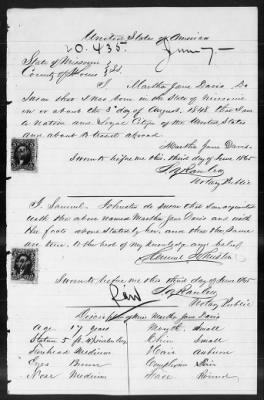 United States of America
20.435
June 7
State of Missouri
County of
I Martha Jane Davis do
Swear that I was born in the State of Missouri
on or about the 3d day of August 1848 that I am
a Native and Loyal Citizen of the United States
and about to travel abroad
Martha Jane Davis
Sworn to before me this third day of June 1865
Notary Public
I Samuel Johnston do swear that I am acquainted
with the above named Martha Jane Davis and with
the facts above stated by her and that the same
are true to the best of my knowledge and belief
Samuel Johnston
Sworn to before me this third day of June 1865
Notary Public
Description of Miss Martha Jane Davis
Age 17 years Mouth Small
Stature 5 ft Chin Small
Forehead Medium Hair Auburn
Eyes Brown Complexion Fair
Nose Medium Face Round